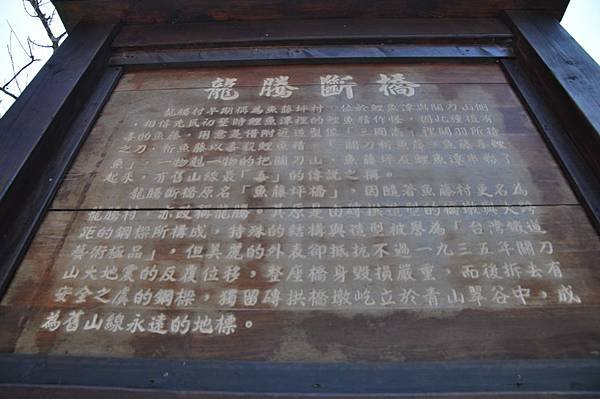 龍騰斷橋
龍騰村早期稱為魚藤坪村，位於鯉魚潭與關刀山側
，相信先民初墾時鯉魚潭裡的鯉魚精作怪，因此種植有
毒的魚藤，用意是借附近造型像「三國志」裡關羽所持
之刀，斬魚藤以毒殺鯉魚精。「關刀斬魚藤，魚藤毒鯉
魚」，一物剋一物的把關刀山、魚藤坪及鯉魚潭串聯了
起來，有舊山線最「毒」的傳說之稱。
龍騰斷橋原名「魚藤坪橋」，因隨著魚藤村更名為
龍騰村，亦改稱龍騰。其原是由磚拱造型的橋墩與大跨
距的鋼樑所構成，特殊的結構與造型被譽為「台灣鐵道
藝術極品」，但美麗的外表卻抵抗不過一九三五年關刀
山大地震的反覆位移，整座橋身毀損嚴重，而後拆去有
安全之虞的鋼樑，獨留磚拱橋墩屹立於青山翠谷中，成
為舊山線永遠的地標。